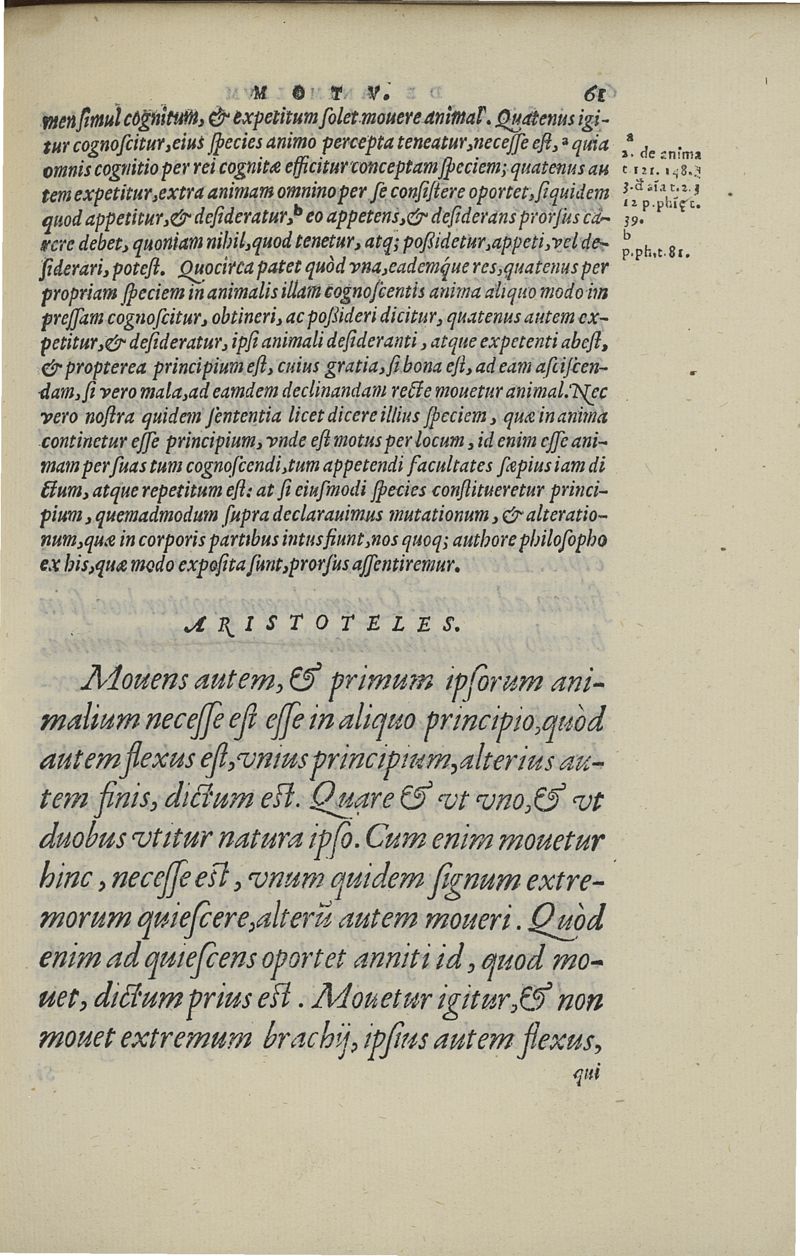 MOTV. 61
men simul cognitum, & expetitum solet mouere animal. Quatenus igi-
tur cognoscitur, eius species animo percepta teneatur, necesse est, ᵃ quia
omnis cognitio per rei cognitæ efficitur conceptam speciem; quatenus au
tem expetitur, extra animam omnino per se consistere oportet, siquidem
quod appetitur, & desideratur, ᵇ eo appetens, & desiderans prorsus ca-
rere debet, quoniam nihil, quod tenetur, atq; possidetur, appeti, vel de-
siderari, potest. Quocirca patet quòd vna, eademq́ue res, quatenus per
propriam speciem in animalis illam cognoscentis anima aliquo modo im
pressam cognoscitur, obtineri, ac possideri dicitur, quatenus autem ex-
petitur, & desideratur, ipsi animali desideranti, atque expetenti abest,
& propterea principium est, cuius gratia, si bona est, ad eam asciscen-
dam, si vero mala, ad eamdem declinandam recte mouetur animal. Nec
vero nostra quidem sententia licet dicere illius speciem, quæ in anima
continetur esse principium, vnde est motus per locum, id enim esse ani-
mam per suas tum cognoscendi, tum appetendi facultates sæpius iam di
ctum, atque repetitum est: at si eiusmodi species constitueretur princi-
pium, quemadmodum supra declarauimus mutationum, & alteratio-
num, quæ in corporis partibus intus fiunt, nos quoq; authore philosopho
ex his, quæ modo exposita sunt, prorsus assentiremur.
a
2. de anima
t 121. 148. 3
12 p.phię c.
39.
b
p.ph.t.81.
ARISTOTELES.
Mouens autem, & primum ipsorum ani-
malium necesse est esse in aliquo principio, quòd
autem flexus est, vnius principium, alterius au-
tem finis, dictum est. Quare & vt vno, & vt
duobus vtitur natura ipso. Cum enim mouetur
hinc, necesse est, vnum quidem signum extre-
morum quiescere, alterũ autem moueri. Quòd
enim ad quiescens oportet anniti id, quod mo-
uet, dictum prius est. Mouetur igitur, & non
mouet extremum brachij, ipsius autem flexus,
qui